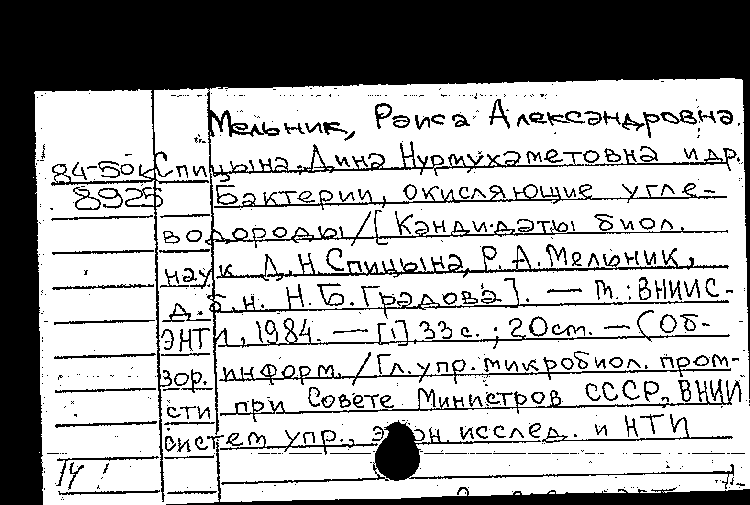 Мельник, Раиса Александровна.
84-50к Спицына, Дина Нурмухаметовна и др.
8925 Бактерии, окисляющие угле-
водороды / [Кандидаты биол.
наук Д. Н. Спицына, Р. А. Мельник,
д. б. н. Н. Б. Градова]. — М. : ВНИИС-
ЭНТИ, 1984. — [1], 33 с. ; 20 см. — (Об-
зор. информ. / Гл. упр. микробиол. пром-
сти при Совете Министров СССР, ВНИИ
систем упр., экон. исслед. и НТИ